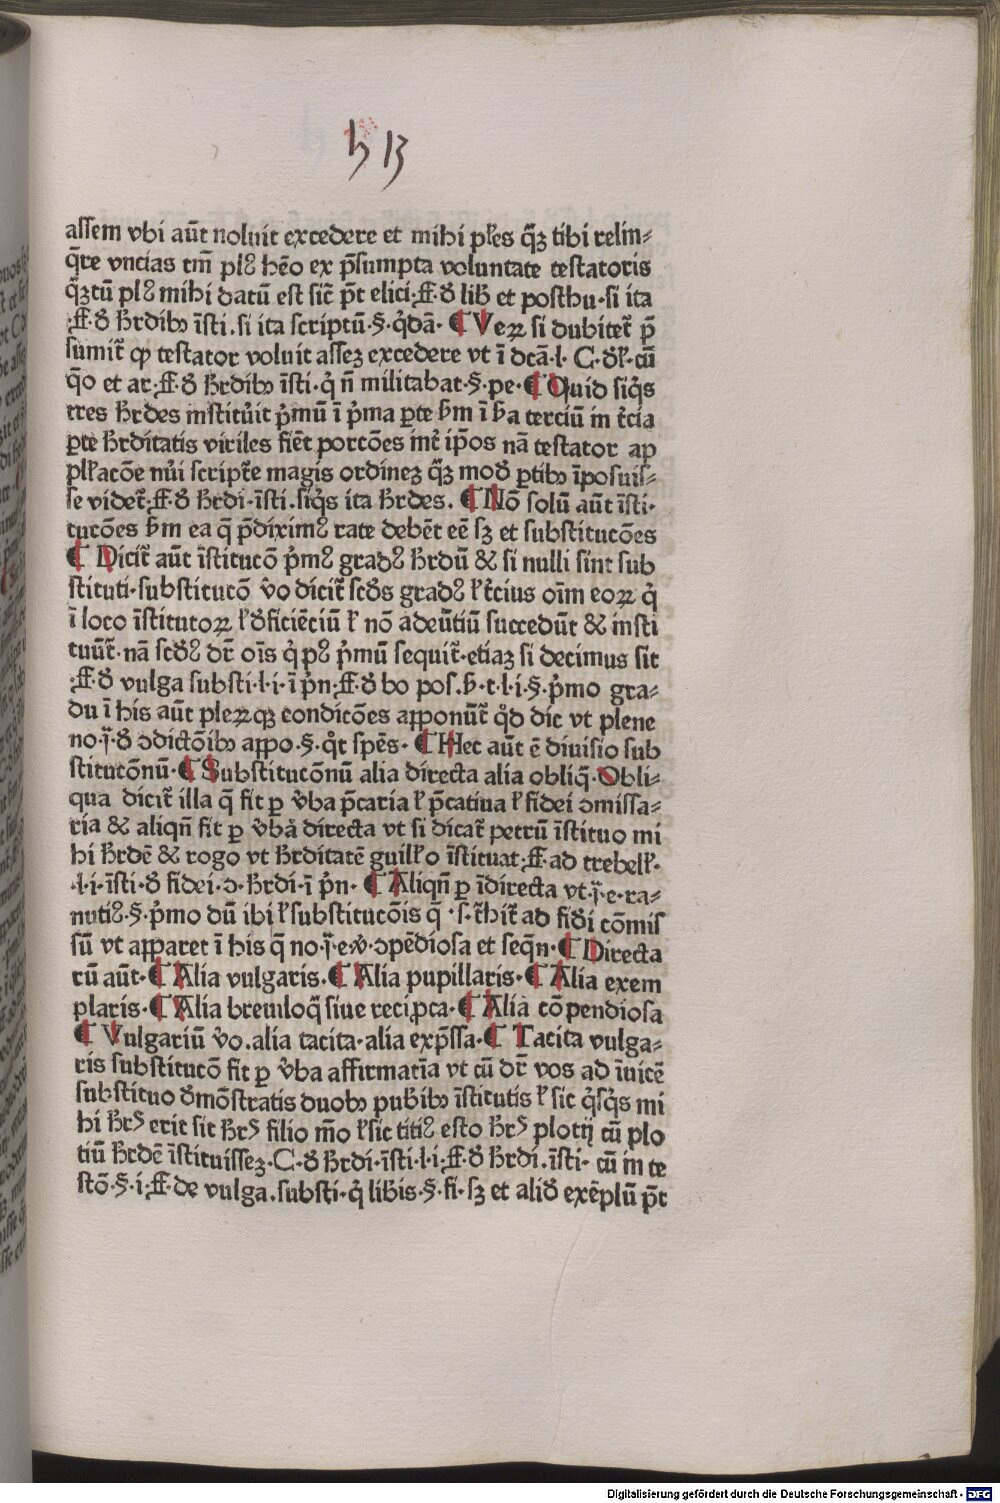 h 13
assem vbi aūt noluit excedere et mihi płes q̄ꝫ tibi relin⸗
q̄re vncias tm̄ plꝰ hēo ex p̄sumpta voluntate testatoris
q̄ꝫtū plꝰ mihi datū est sic̄ p̄t elici·ff·ꝺ̄ lib̄ et posthu·si ita
·ff·ꝺ̄ h̄rdibꝫ īsti.si ita scriptū·§·q̇dā· ¶ Veꝝ si dubitet̄ p̄
sumit̄ ꝙ testator voluit asseꝫ excedere vt ī dcā·l· C·ꝺ̄ꝉ·cū
q̄o et ar·ff·ꝺ̄ h̄rdibꝫ īsti·q̇ n̄ militabat·§·pe· ¶ Quid siq̇s
tres h̄rdes instituit ṗmū ī ṗma ꝑte ẜm ī ẜa terciū in t̄cia
ꝑte h̄rditatis viriles fiēt porcōes int̄ ip̄os nā testator ap
plꝉacōe nūi script̄e magis ordineꝫ q̄ꝫ moꝺ̄ ꝑtibꝫ īposuis⸗
se videt̄·ff·ꝺ̄ h̄rdi·īsti.siq̇s ita h̄rdes. ¶ Nō solū aūt īsti·
tucōes ẜm ea q̄ p̄diximꝰ rate debēt eē sꝫ et substitucōes
¶ Dicit̄ aūt īstitucō ṗmꝰ gradꝰ h̄rdū & si nulli sint sub
stituti·substitucō v̄o dicit̄ scḋs gradꝰ ꝉ t̄cius oīm eoꝝ q̇
ī loco īstitutoꝝ ꝉ ꝺ̄ficiēciū ꝉ nō adeūtiū succedūt & insti
tuūt̄·nā scḋꝰ dr̄ oīs q̇ pꝰ ṗmū sequit̄·etiaꝫ si decimus sit
·ff·ꝺ̄ vulga substi·l·i·ī ṗn·ff·ꝺ̄ bo pos.ẜ·t·l·i·§·ṗmo gra⸗
du ī his aūt pleꝝꝙ condicōes apponūt̄ q̇d dic vt plene
no·j̄·ꝺ̄ ↄdictōibꝫ appo·§·q̇t spēs· ¶ Hec aūt ē diuisio sub
stitucōnū· ¶ Substitucōnū alia directa alia obliq̄·Obli⸗
qua dicit̄ illa q̄ fit ꝑ v̄ba p̄caria ꝉ p̄catiua ꝉ fidei ↄmissa⸗
ria & aliqn̄ fit ꝑ v̄ba directa vt si dicat̄ petrū īstituo mi
hi h̄rdē & rogo vt h̄rditatē guilꝉo īstituat·ff·ad trebelꝉ·
·l·i·īsti·ꝺ̄ fidei·ↄ·h̄rdi·ī ṗn· ¶ Aliqn̄ ꝑ īdirecta vt·j̄·e·ra⸗
nutiꝰ·§·ṗmo dū ibi ꝉ substitucōis q̄ ·s·t̄hit̄ ad fiḋi cōmis
sū vt apparet ī his q̄ no·j̄·e·v̄·ↄpēdiosa et seq̄n· ¶ Directa
rū aūt· ¶ Alia vulgaris. ¶ Alia pupillaris· ¶ Alia exem
plaris· ¶ Alia breuiloq̄ siue recip̱ca· ¶ Alia cōpendiosa
¶ Vulgariū v̄o.alia tacita·alia exp̄ssa· ¶ Tacita vulga⸗
ris substitucō fit ꝑ v̄ba affirmatīa vt cū dr̄ vos ad īuicē
substituo ꝺ̄mōstratis duobꝫ pubibꝫ īstitutis ꝉ sic q̇sq̇s mi
hi h̄rꝭ erit sit h̄rꝭ filio m̄o ꝉ sic titiꝰ esto h̄rꝭ plotij cū plo
tiū h̄rdē īstituisseꝫ·C·ꝺ̄ h̄rdi·īsti·l·i·ff·ꝺ̄ h̄rdi.īsti· cū in te
stō·§·i·ff·de vulga.substi·q̇ libis·§·fi·sꝫ et aliꝺ̄ exēplū p̄t
Digitalisierung gefördert durch die Deutsche Forschungsgemeinschaft - DFG